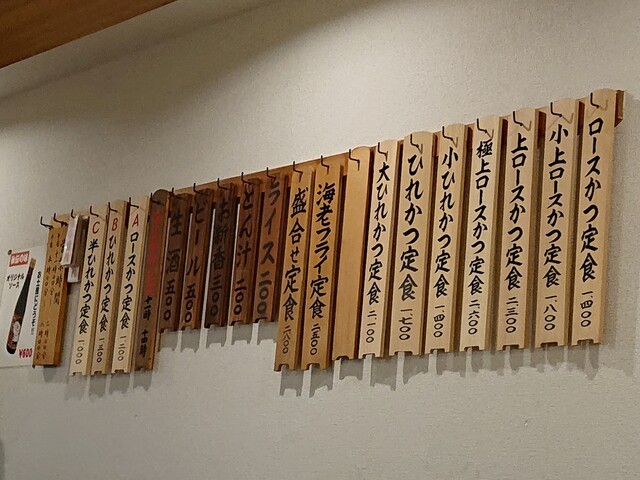 ロースかつ定食 一、四〇〇
小上ロースかつ定食 一、八〇〇
上ロースかつ定食 二、三〇〇
極上ロースかつ定食 二、六〇〇
小ひれかつ定食 一、四〇〇
ひれかつ定食 一、七〇〇
大ひれかつ定食 二、一〇〇
海老フライ定食 二、五〇〇
盛合せ定食 二、八〇〇
ライス 二〇〇
とん汁 二〇〇
お新香 三〇〇
ビール 五〇〇
生酒 五〇〇
十一時〜十四時
A ロースかつ定食 一、一〇〇
B ひれかつ定食 一、三〇〇
C 半ひれかつ定食 一、〇〇〇
オリジナルソース
お土産にどうぞ!!
¥600